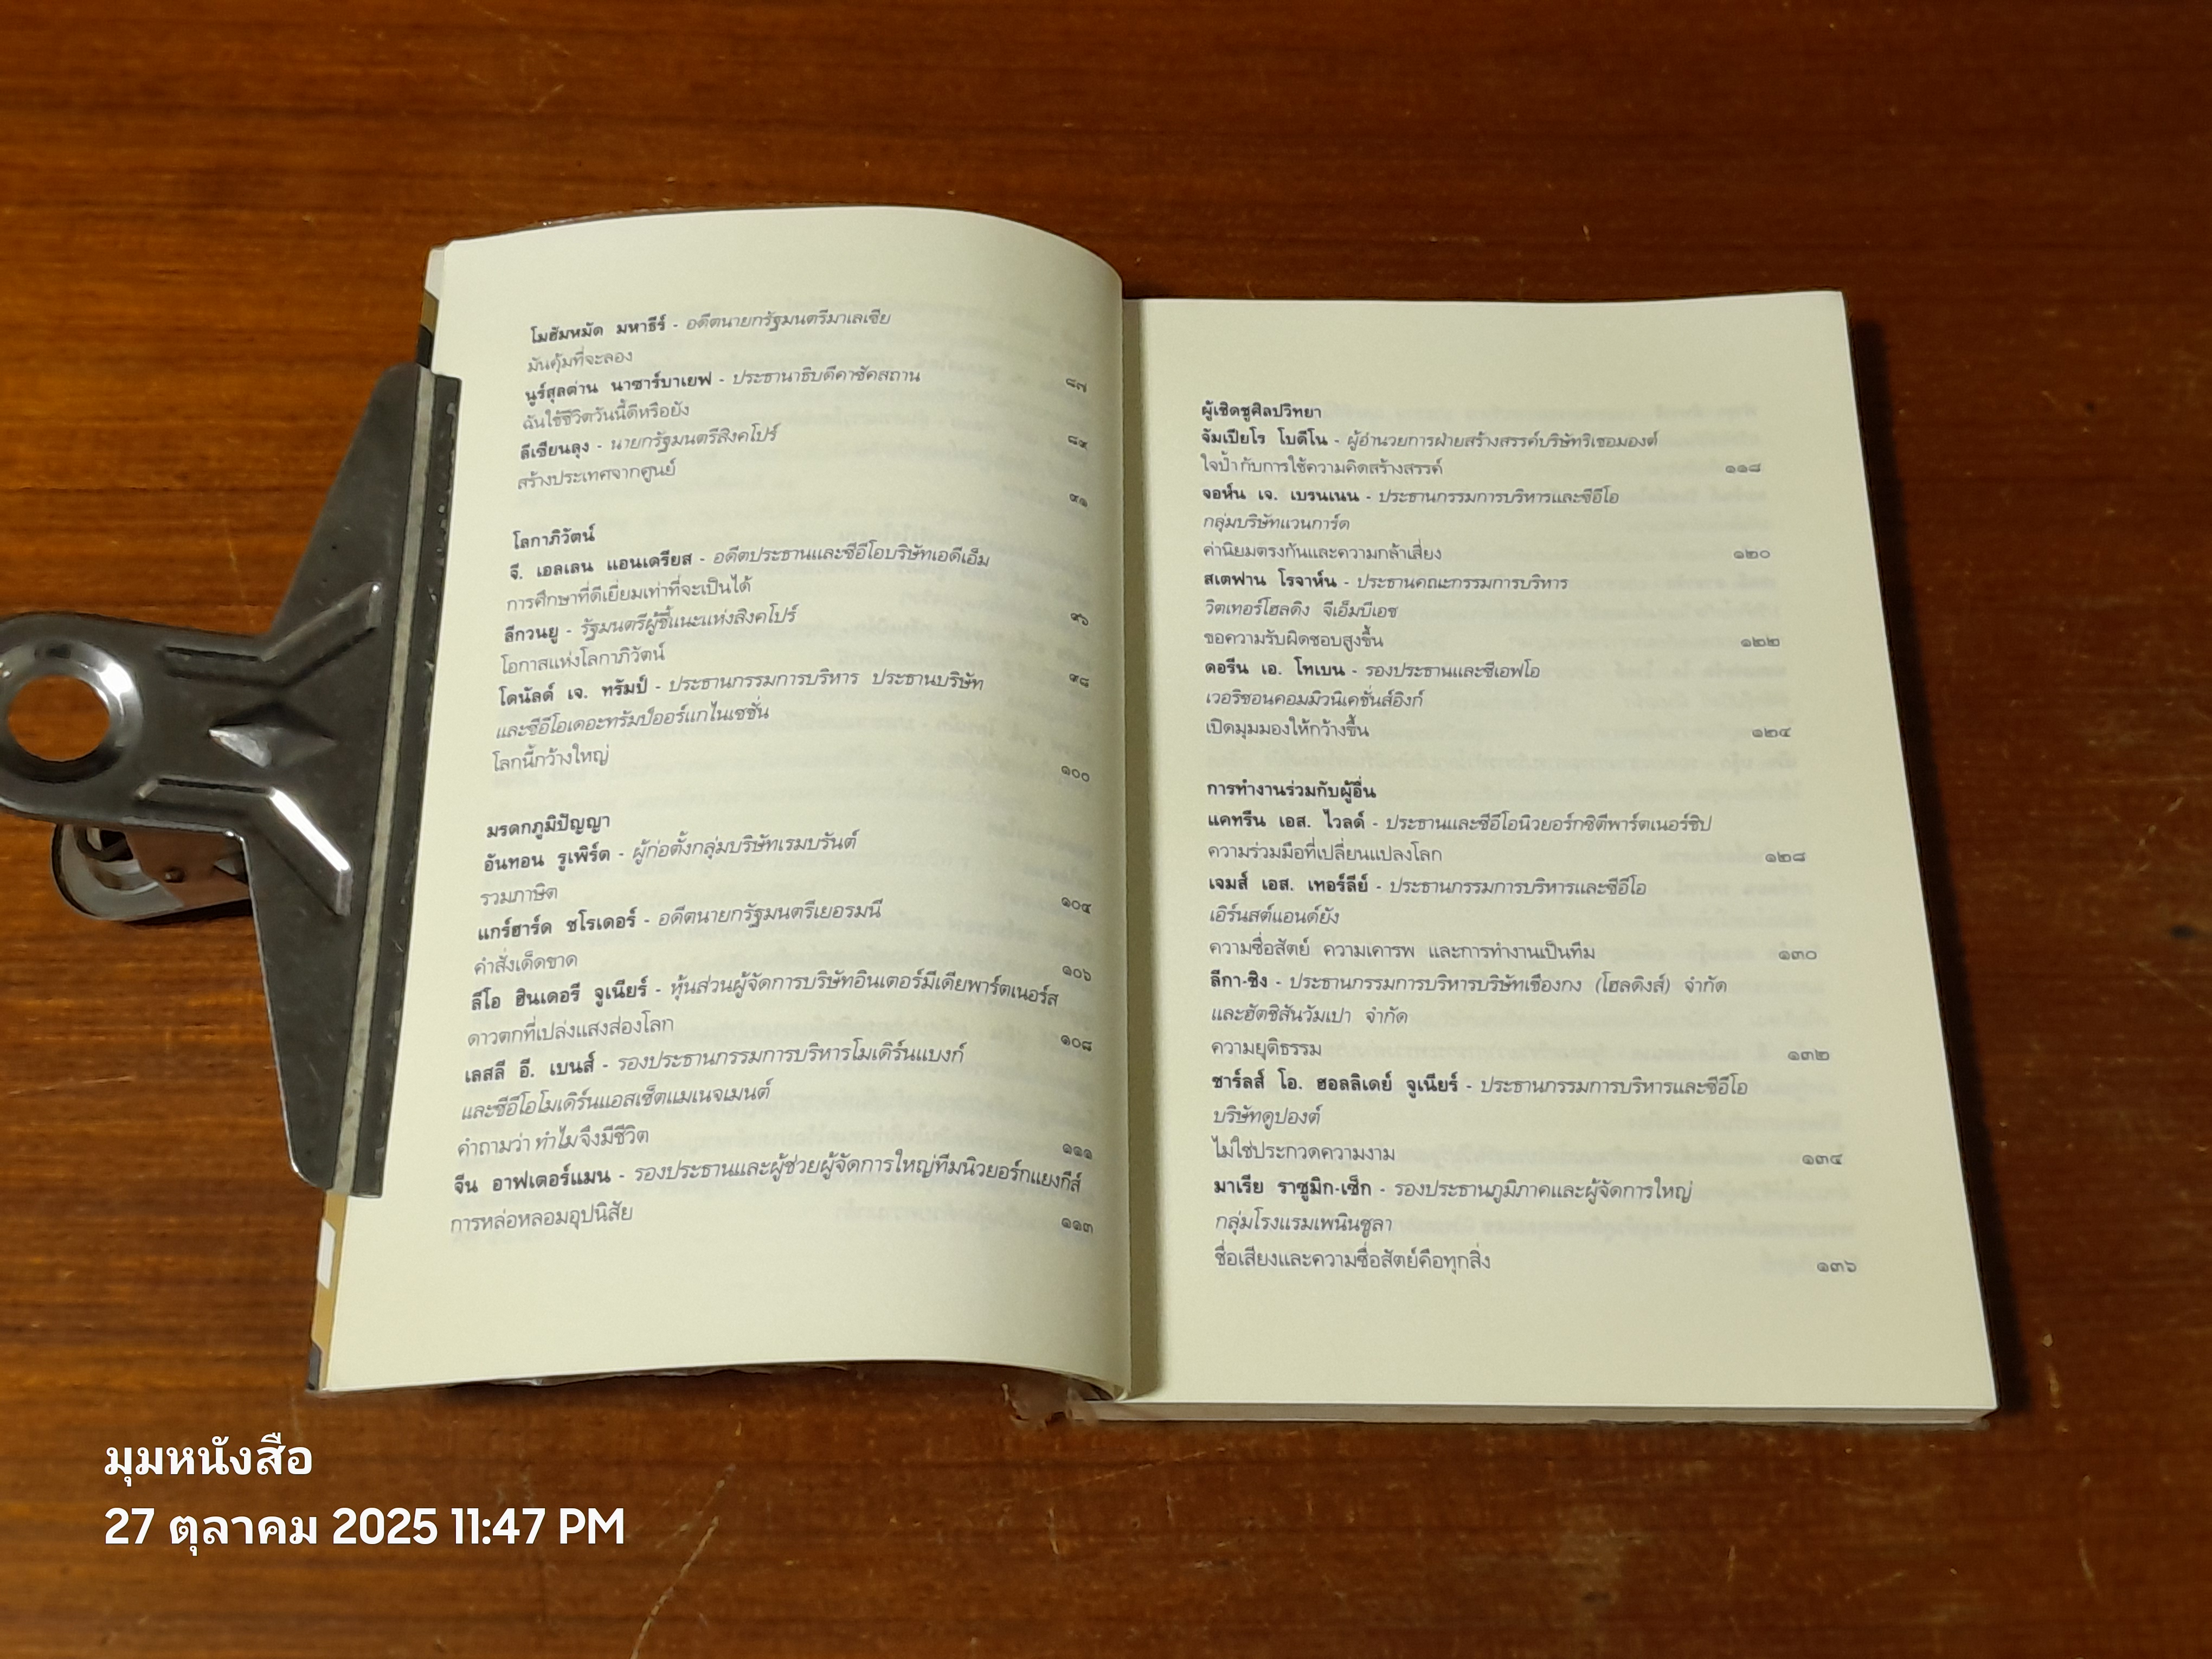 โมฮัมหมัด มหาธีร์ - อดีตนายกรัฐมนตรีมาเลเซีย
มันคุ้มที่จะลอง ๘๗
นูร์สุลต่าน นาซาร์บาเยฟ - ประธานาธิบดีคาซัคสถาน
ฉันใช้ชีวิตวันนี้ดีหรือยัง ๘๙
ลีเซียนลุง - นายกรัฐมนตรีสิงคโปร์
สร้างประเทศจากศูนย์ ๙๑
โลกาภิวัตน์
จี. เอลเลน แอนเดรียส - อดีตประธานและซีอีโอบริษัทเอดีเอ็ม
การศึกษาที่ดีเยี่ยมเท่าที่จะเป็นได้ ๙๖
ลีกวนยู - รัฐมนตรีผู้ชี้แนะแห่งสิงคโปร์
โอกาสแห่งโลกาภิวัตน์ ๙๘
โดนัลด์ เจ. ทรัมป์ - ประธานกรรมการบริหาร ประธานบริษัท
และซีอีโอเดอะทรัมป์ออร์แกไนเซชั่น
โลกนี้กว้างใหญ่ ๑๐๐
มรดกภูมิปัญญา
อันทอน รูเพิร์ต - ผู้ก่อตั้งกลุ่มบริษัทเรมบรันต์
รวมภาษิต ๑๐๔
แกร์ฮาร์ด ชโรเดอร์ - อดีตนายกรัฐมนตรีเยอรมนี
คำสั่งเด็ดขาด ๑๐๖
ลีโอ ฮินเดอรี จูเนียร์ - หุ้นส่วนผู้จัดการบริษัทอินเตอร์มีเดียพาร์ตเนอร์ส
ดาวตกที่เปล่งแสงส่องโลก ๑๐๘
เลสลี อี. เบนส์ - รองประธานกรรมการบริหารโมเดิร์นแบงก์
และซีอีโอโมเดิร์นแอสเซ็ตแมเนจเมนต์
คำถามว่า ทำไม จึงมีชีวิต ๑๑๑
จีน อาฟเตอร์แมน - รองประธานและผู้ช่วยผู้จัดการใหญ่ทีมนิวยอร์กแยงกีส์
การหล่อหลอมอุปนิสัย ๑๑๓
ผู้เชิดชูศิลปวิทยา
จัมเปียโร โบดีโน - ผู้อำนวยการฝ่ายสร้างสรรค์บริษัทริเชอมองต์
ใจป้ำกับการใช้ความคิดสร้างสรรค์ ๑๑๘
จอห์น เจ. เบรนเนน - ประธานกรรมการบริหารและซีอีโอ
กลุ่มบริษัทแวนการ์ด
ค่านิยมตรงกันและความกล้าเสี่ยง ๑๒๐
สเตฟาน โรจาห์น - ประธานคณะกรรมการบริหาร
วิตเทอร์โฮลดิง จีเอ็มบีเอช
ขอความรับผิดชอบสูงขึ้น ๑๒๒
ดอรีน เอ. โทเบน - รองประธานและซีเอฟโอ
เวอริซอนคอมมิวนิเคชั่นส์อิงก์
เปิดมุมมองให้กว้างขึ้น ๑๒๔
การทำงานร่วมกับผู้อื่น
แคทรีน เอส. ไวลด์ - ประธานและซีอีโอนิวยอร์กซิตีพาร์ตเนอร์ชิป
ความร่วมมือที่เปลี่ยนแปลงโลก ๑๒๘
เจมส์ เอส. เทอร์ลีย์ - ประธานกรรมการบริหารและซีอีโอ
เอิร์นสต์แอนด์ยัง
ความซื่อสัตย์ ความเคารพ และการทำงานเป็นทีม ๑๓๐
ลีกา-ชิง - ประธานกรรมการบริหารบริษัทเชืองกง (โฮลดิงส์) จำกัด
และฮัตชิสันวัมเปา จำกัด
ความยุติธรรม ๑๓๒
ชาร์ลส์ โอ. ฮอลลิเดย์ จูเนียร์ - ประธานกรรมการบริหารและซีอีโอ
บริษัทดูปองต์
ไม่ใช่ประกวดความงาม ๑๓๔
มาเรีย ราซูมิก-เซ็ก - รองประธานภูมิภาคและผู้จัดการใหญ่
กลุ่มโรงแรมเพนินซูลา
ชื่อเสียงและความซื่อสัตย์คือทุกสิ่ง ๑๓๖
มุมหนังสือ
27 ตุลาคม 2025 11:47 PM